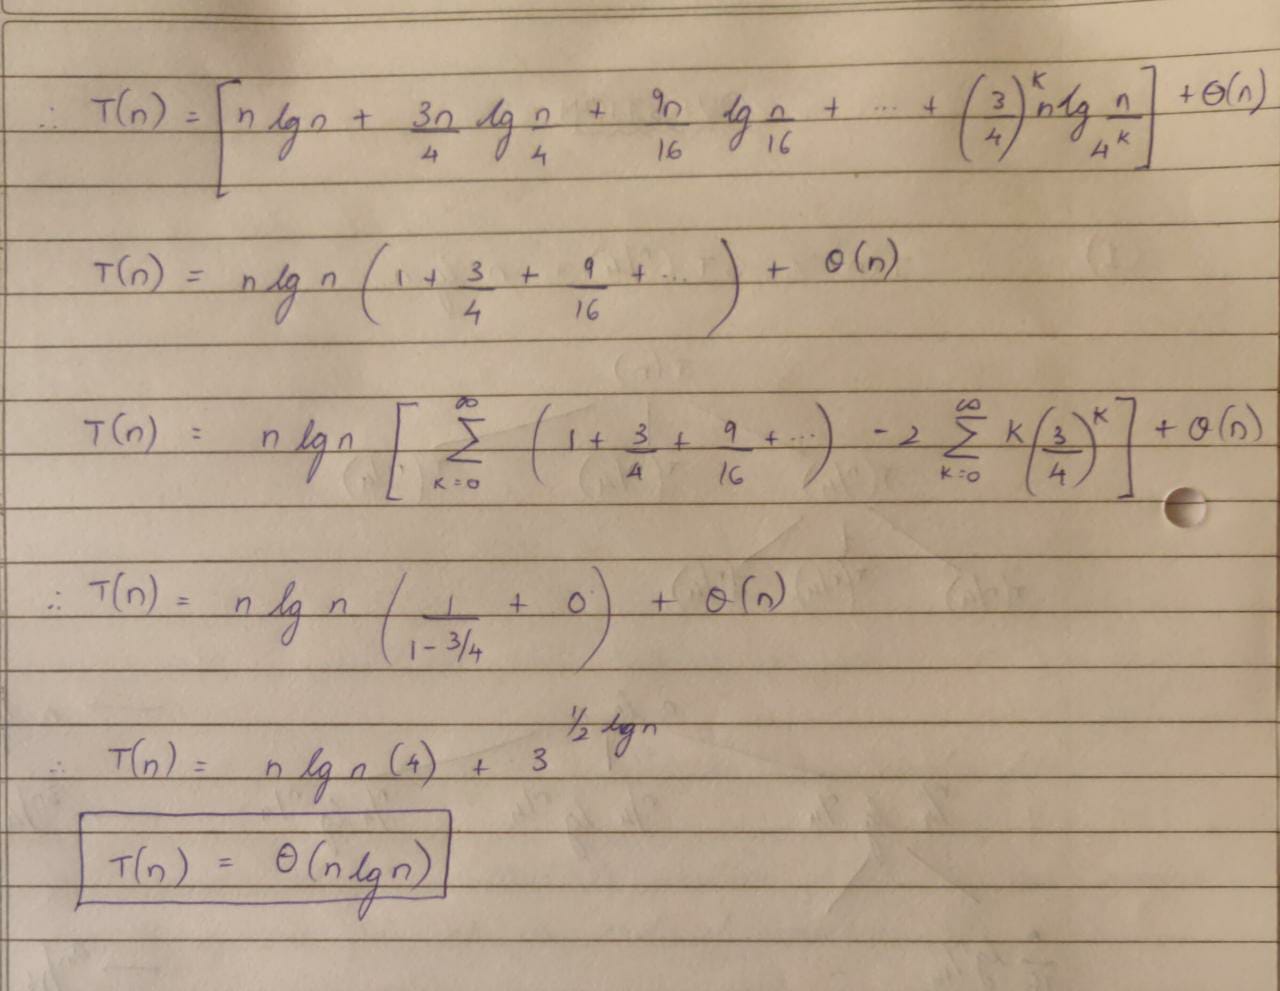 ∴ T(n) = [ n lg n + 3n/4 lg n/4 + 9n/16 lg n/16 + ... + (3/4)^k n lg n/4^k ] + θ(n)
T(n) = n lg n ( 1 + 3/4 + 9/16 + ... ) + θ(n)
T(n) = n lg n [ ∑_{k=0}^{∞} ( 1 + 3/4 + 9/16 + ... ) - 2 ∑_{k=0}^{∞} k (3/4)^k ] + θ(n)
∴ T(n) = n lg n ( 1/(1 - 3/4) + 0 ) + θ(n)
∴ T(n) = n lg n (4) + 3^{1/2 lg n}
T(n) = θ(n lg n)